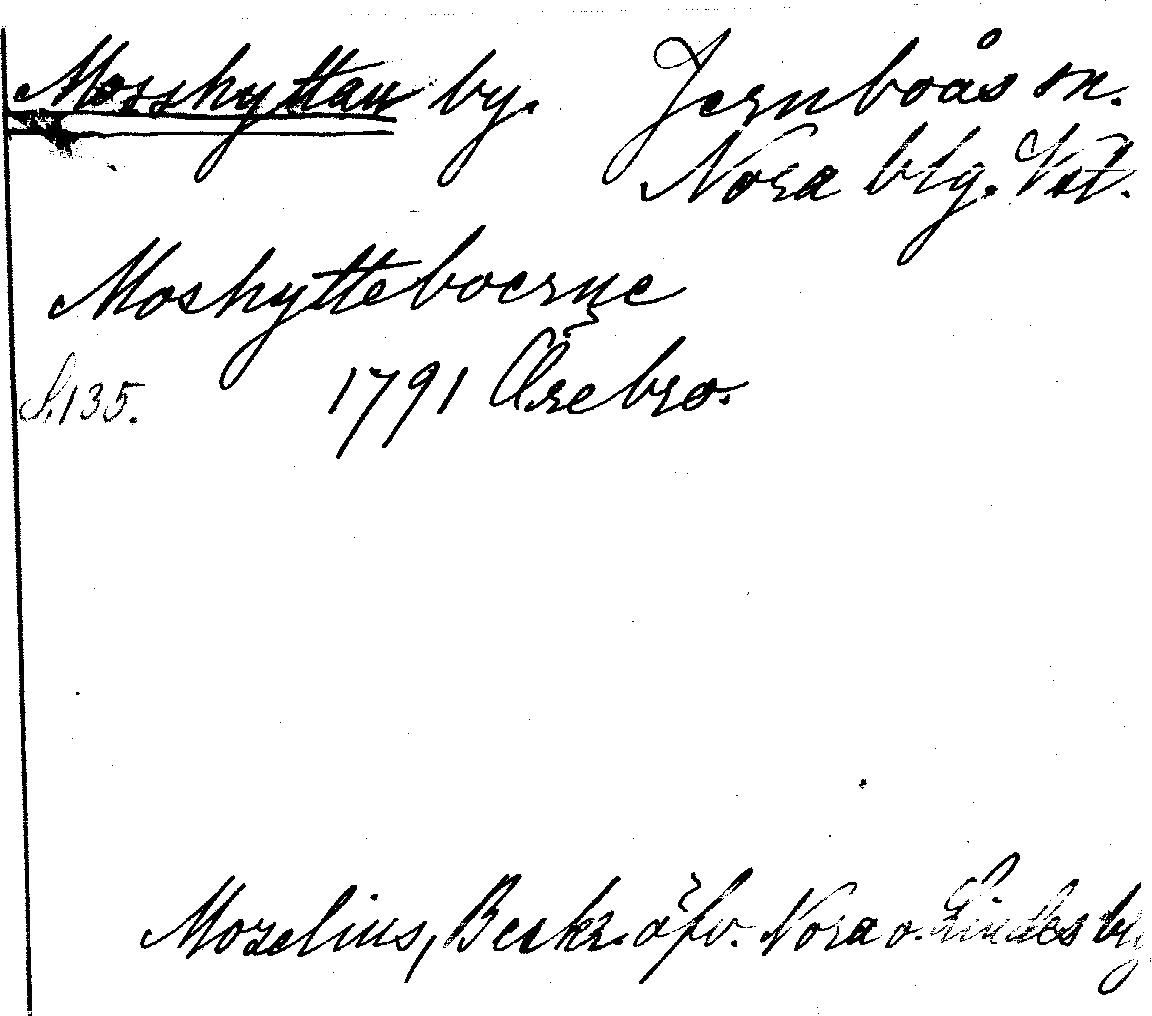 Mosshyttan by. Jernboås sn.
Nora blg. Vstl.
Moshytteboerne
S. 135. 1791 Örebro.
Morelius, Beskr. öfv. Nora o. Lindes blg